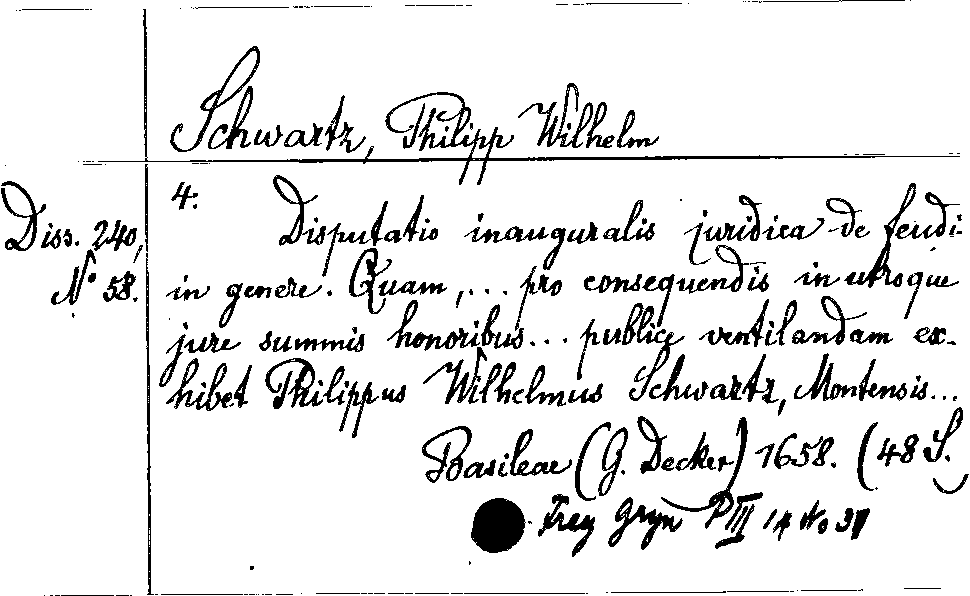 Schwartz, Philipp Wilhelm
Diss. 240,
No 58.
4.
Disputatio inauguralis juridica de feudi
in genere. Quam,... pro consequendis in utroque
jure summis honoribus... publice ventilandam ex-
hibet Philippus Wilhelmus Schwartz, Montensis...
Basileae (G. Decker) 1658. (48 S.)
Frey Gryn P III 14 No 37